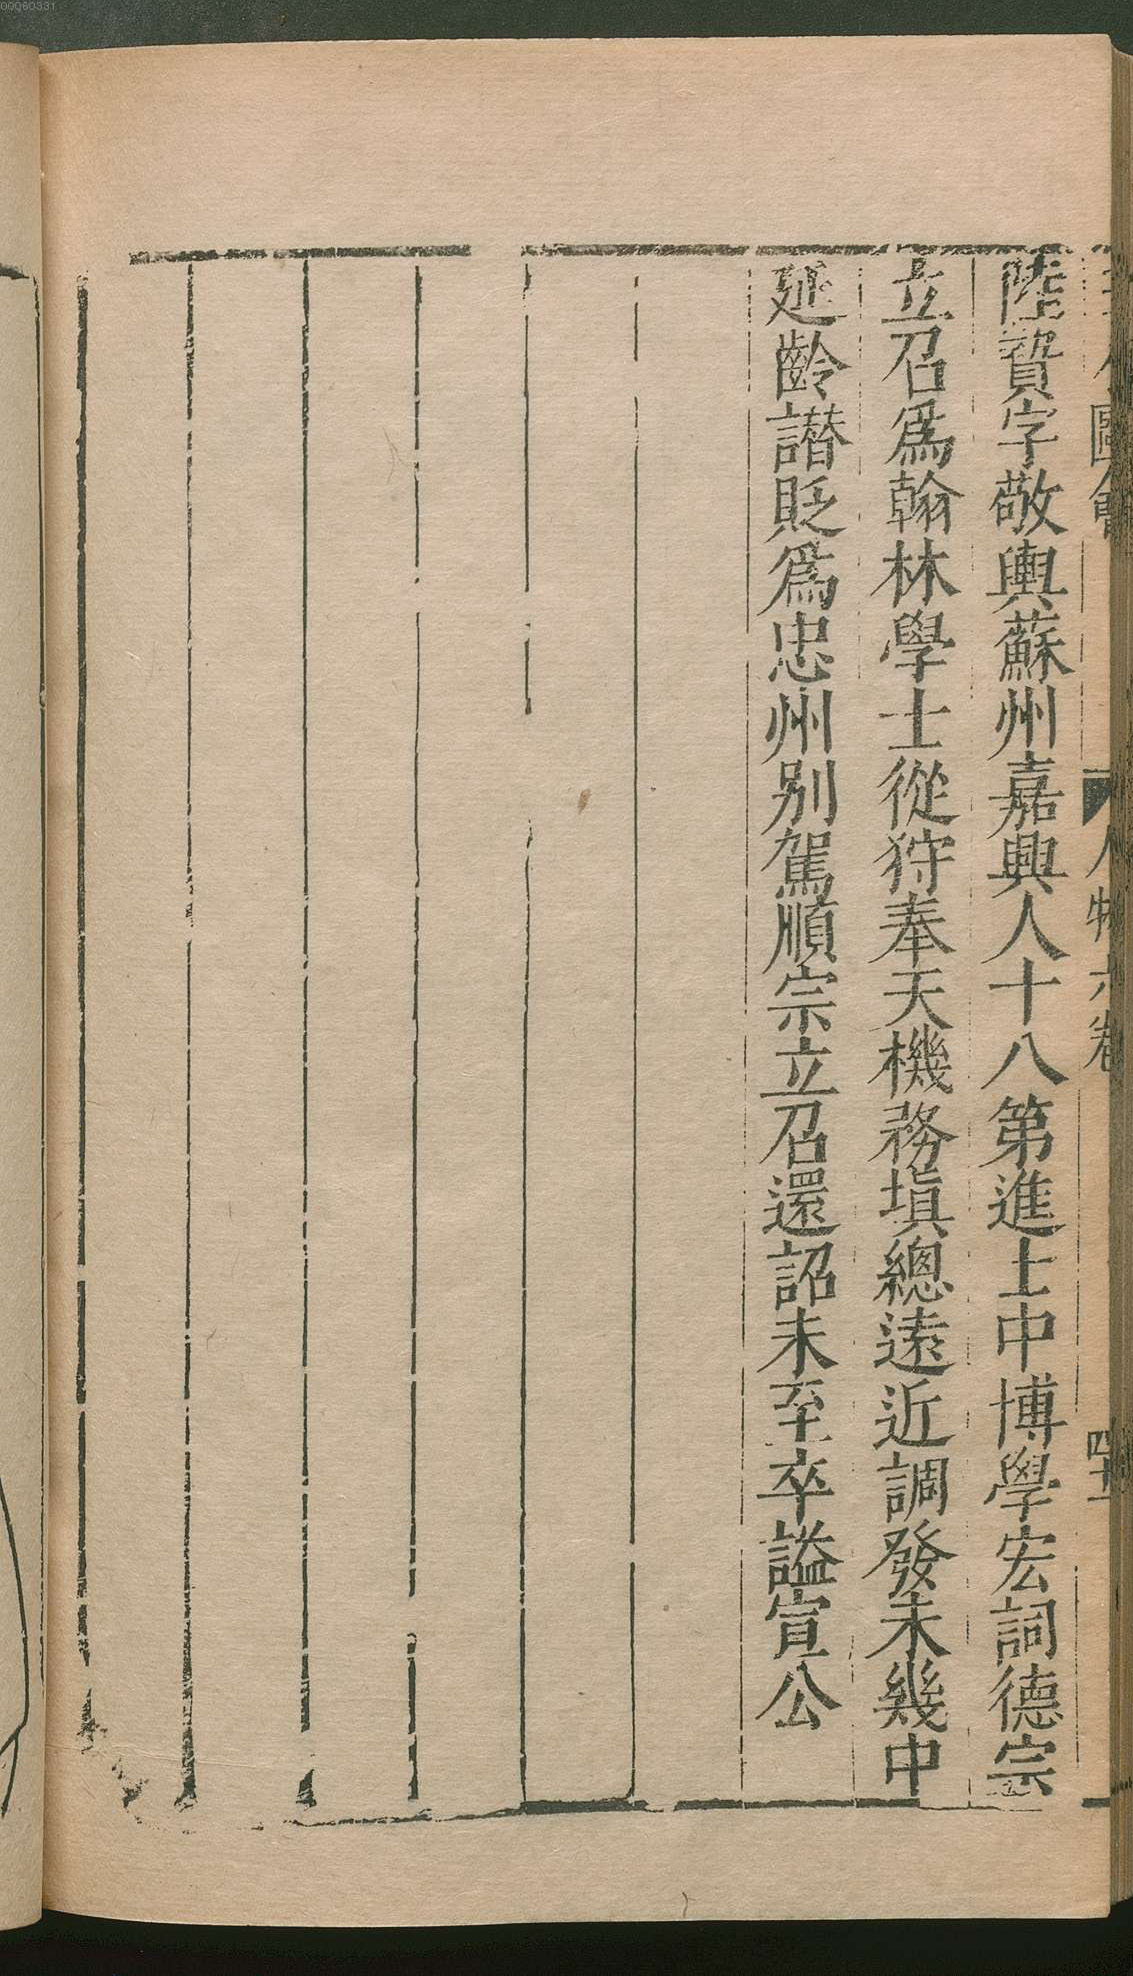 00060331
圖會
人物六卷
陸贄字敬輿蘇州嘉興人十八第進士中博學宏詞德宗
立召爲翰林學士從狩奉天機務塡總遠近調發未幾中
延齡譖貶爲忠州别駕順宗立召還詔未至卒謚宣公